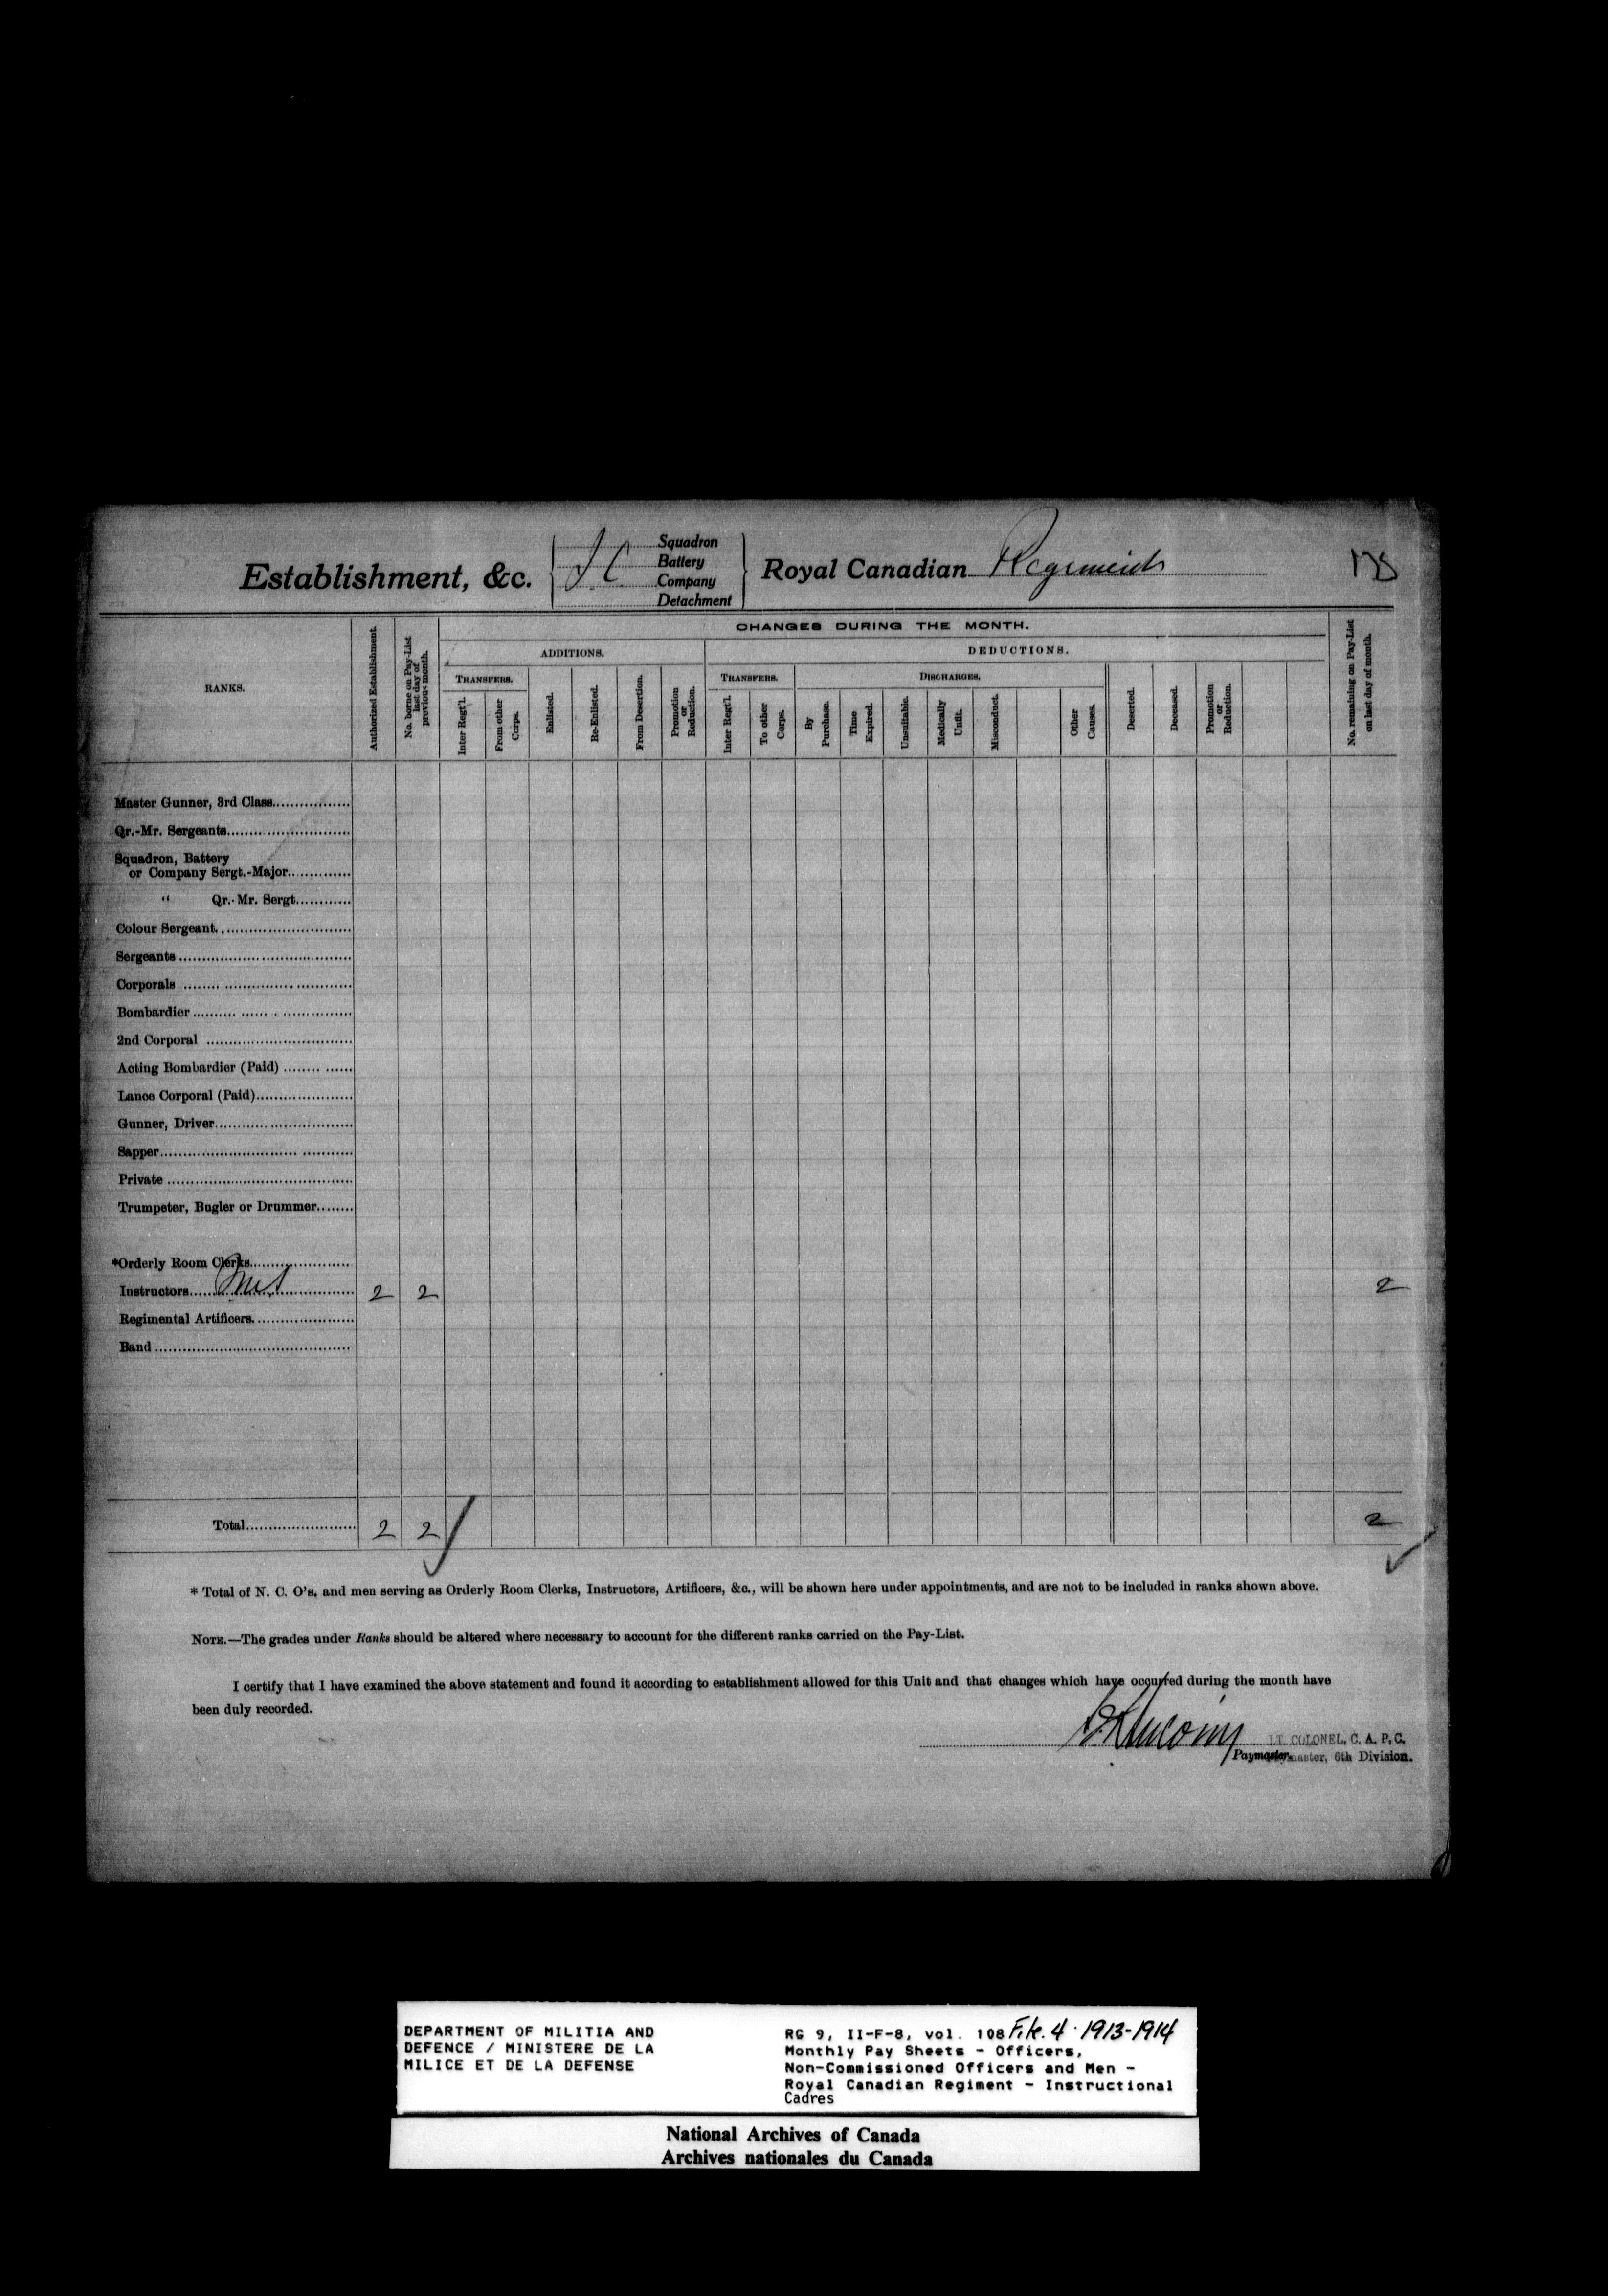 Establishment, &c.
Squadron
Battery
Company
Detachment
Royal Canadian Regiment
CHANGES DURING THE MONTH.
RANKS.
Authorized Establishment.
No. borne on Pay-List last day of previous month.
ADDITIONS.
DEDUCTIONS.
No. remaining on Pay-List on last day of month.
TRANSFERS.
TRANSFERS.
DISCHARGES.
Inter Regt'l.
From other Corps.
Enlisted.
Re-Enlisted.
From Desertion.
Promotion or Reduction.
Inter Regt'l.
To other Corps.
By Purchase.
Time Expired.
Unsuitable.
Medically Unfit.
Misconduct.
Other Causes.
Deserted.
Deceased.
Promotion or Reduction.
Master Gunner, 3rd Class
Qr.-Mr. Sergeants
Squadron, Battery
or Company Sergt.-Major
" Qr.-Mr. Sergt
Colour Sergeant
Sergeants
Corporals
Bombardier
2nd Corporal
Acting Bombardier (Paid)
Lance Corporal (Paid)
Gunner, Driver
Sapper
Private
Trumpeter, Bugler or Drummer
*Orderly Room Clerks
Instructors 2 2 2
Regimental Artificers
Band
Total 2 2 2
* Total of N. C. O's. and men serving as Orderly Room Clerks, Instructors, Artificers, &c., will be shown here under appointments, and are not to be included in ranks shown above.
NOTE.—The grades under Ranks should be altered where necessary to account for the different ranks carried on the Pay-List.
I certify that I have examined the above statement and found it according to establishment allowed for this Unit and that changes which have occurred during the month have
been duly recorded.
LT. COLONEL, C. A. P. C.
Paymaster, 6th Division.
DEPARTMENT OF MILITIA AND
DEFENCE / MINISTERE DE LA
MILICE ET DE LA DEFENSE
RG 9, II-F-8, vol. 108 File 4 1913-1914
Monthly Pay Sheets - Officers,
Non-Commissioned Officers and Men -
Royal Canadian Regiment - Instructional
Cadres
National Archives of Canada
Archives nationales du Canada